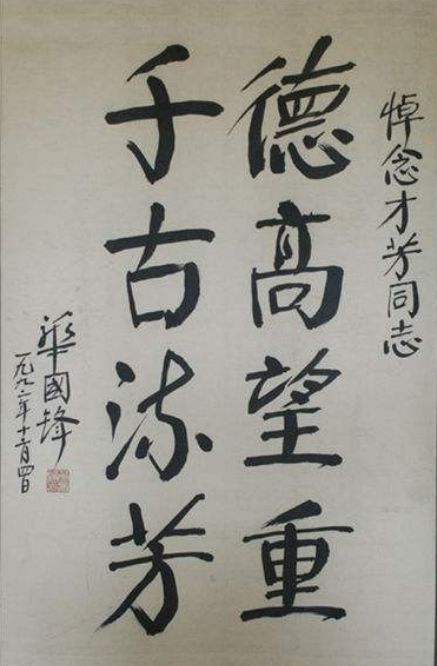 悼念才芳同志
德高望重
千古流芳
華國鋒
一九九二年十二月四日